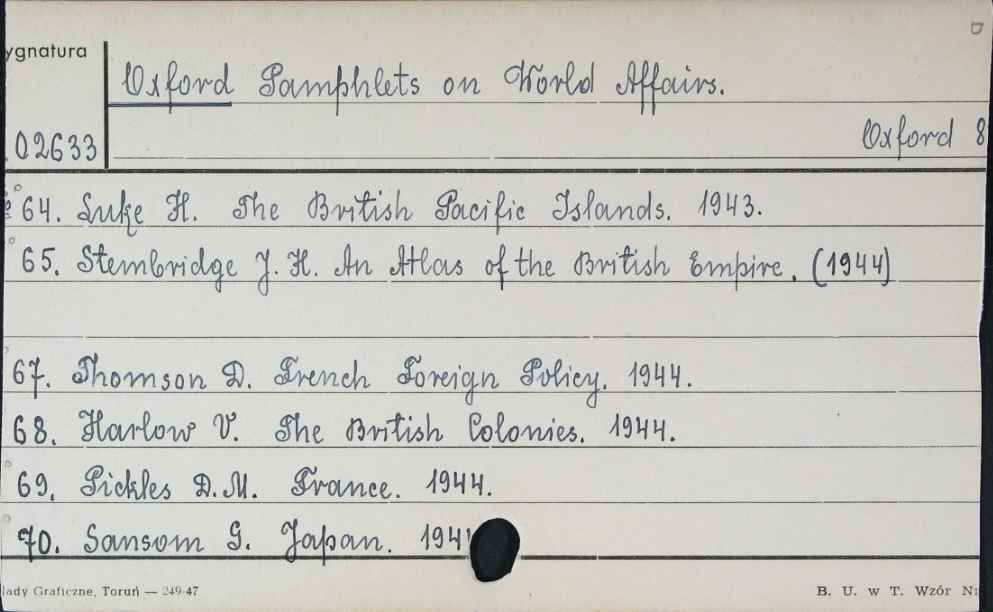 ygnatura
Oxford Pamphlets on World Affairs.
02633
Oxford 8
64. Luke H. The British Pacific Islands. 1943.
65. Stembridge J. H. An Atlas of the British Empire. (1944)
67. Thomson D. French Foreign Policy. 1944.
68. Harlow V. The British Colonies. 1944.
69. Pickles D.M. France. 1944.
70. Sansom G. Japan. 194
lady Graficzne, Toruń — 249-47
B. U. w T. Wzór N